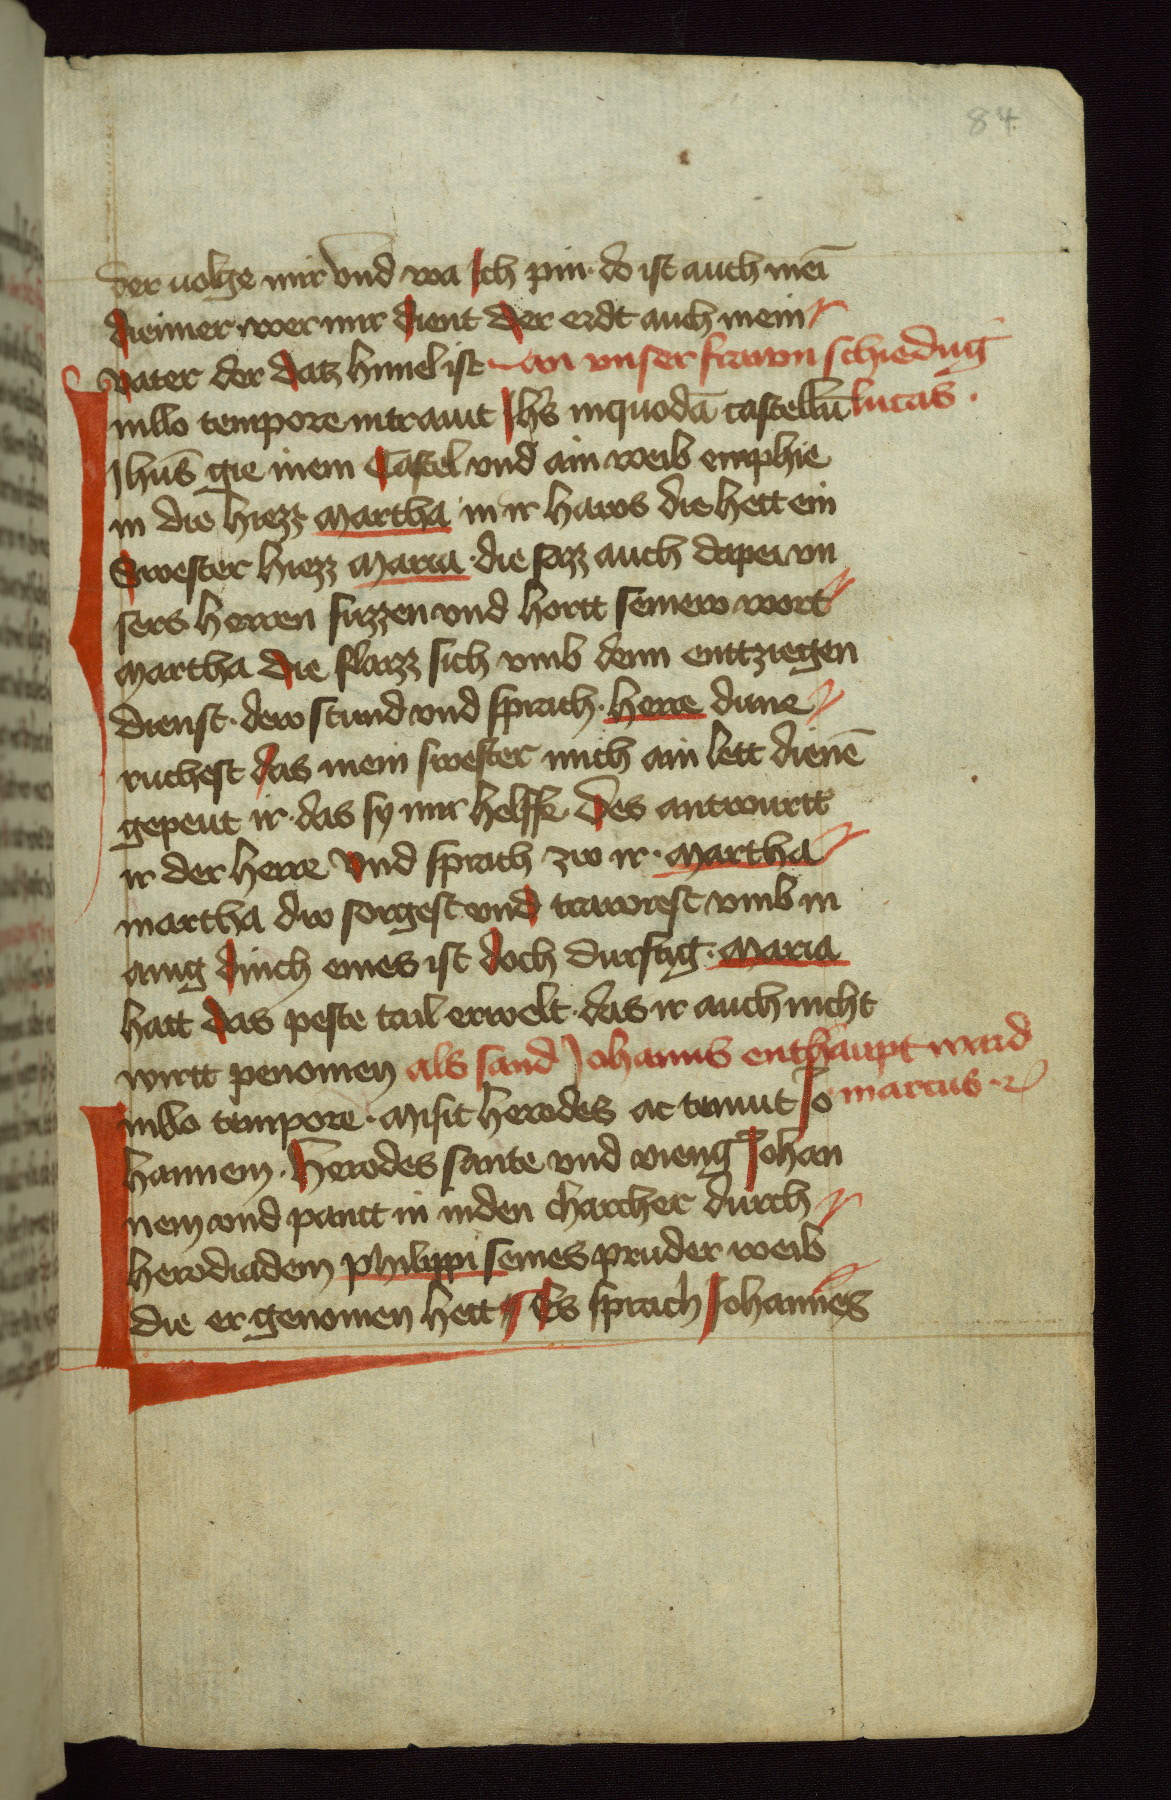 84
der uolge mir vnd wa Ich pin · do ist auch mei̅
diener wer mir dient der erdt auch mein
vater der datz himel ist an vnser frawn schiedu̅g
Inllo tempore intrauit Ih̅s inquoda̅ castellu̅ lucas ·
Ihu̅s gie inem Castel vnd ain weib emphie
in die hiezz Martha in ir haws die hett ein
Swester hiezz Maria · die sazz auch dapei vn
sers herren fuzzen vnd hortt seinew wort
Martha die flaizz sich vmb denn enttziegen
dienst · dew stund vnd sprach · herre dune
ruchest das mein swester mich ain lett diene̅
gepeut ir · das sy mir helffe · Des antwurtt
ir der herre vnd sprach zw ir · Martha
martha dw sorgest vnd trawrest vmb m
anig dinch eines ist doch durftig · Maria
hatt das peste tail erwelt · das ir auch nicht
wirtt penomen als sand Johanns enthaupt ward
Inllo tempore · Misit herodes ac tenuit Jo marcus ·
hannem · Herodes sante vnd vieng Johan
nem vnd pantt in inden charcher durch
herodiadem philippi seines pruder weib
die er genomen hett Es sprach Johannes